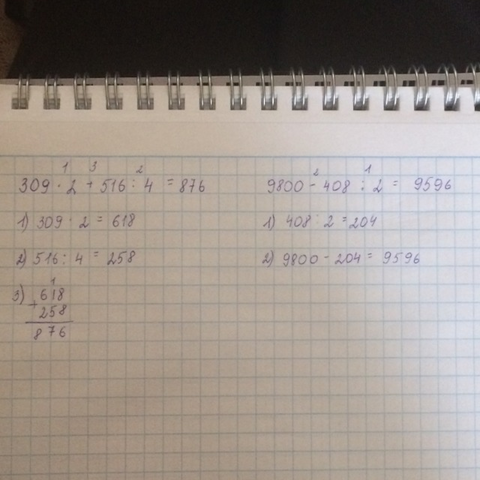 1 3 2
309 · 2 + 516 : 4 = 876
1) 309 · 2 = 618
2) 516 : 4 = 258
3) 1
618
+ 258
876
2 1
9800 - 408 : 2 = 9596
1) 408 : 2 = 204
2) 9800 - 204 = 9596